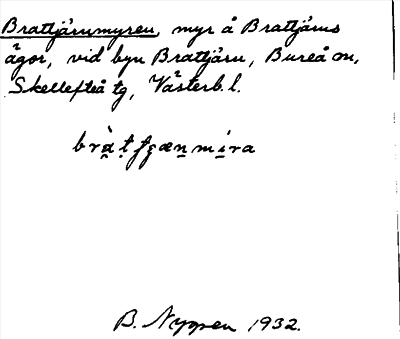 Brattjärnmyren, myr å Brattjärns
ägor, vid byn Brattjärn, Bureå sn,
Skellefteå tg, Västerb. l.
B. Nygren 1932.